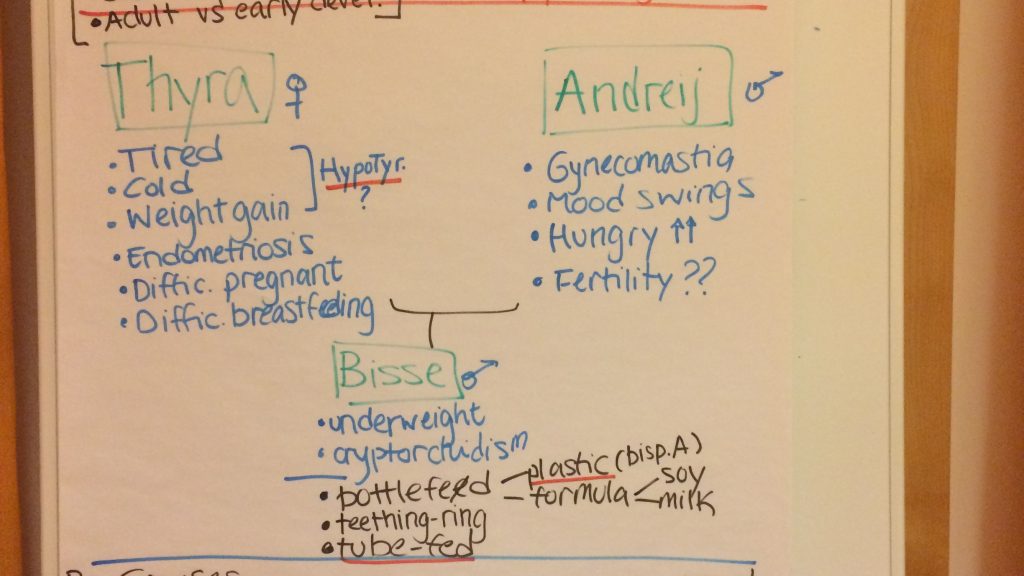 • Adult vs early devel.
Thyra ♀
• Tired
• Cold
• Weight gain
HypoTyr.
?
• Endometriosis
• Diffic. pregnant
• Diffic. breastfeeding
Andreij ♂
• Gynecomastia
• Mood swings
• Hungry ↑↑
• Fertility ??
Bisse ♂
• underweight
• cryptorchidism
• bottlefeed
plastic (bisp.A)
formula
soy
milk
• teething-ring
• tube-fed